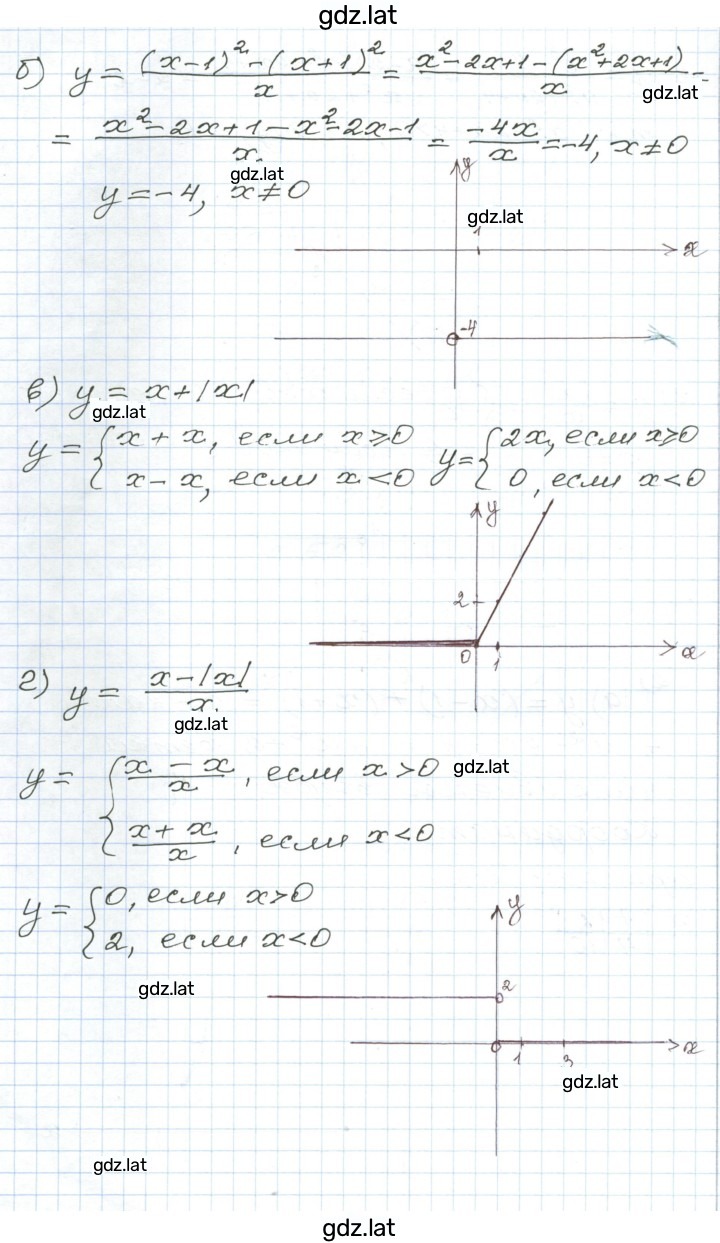 gdz.lat
б) y = ((x-1)² - (x+1)²)/x = (x² - 2x + 1 - (x² + 2x + 1))/x =
gdz.lat
= (x² - 2x + 1 - x² - 2x - 1)/x. = (-4x)/x = -4, x ≠ 0
gdz.lat
y
y = -4, x ≠ 0
gdz.lat
1
x
-4
в) y = x + |x|
gdz.lat
y = { x + x, если x ⩾ 0 y = { 2x, если x ⩾ 0
x - x, если x < 0 0, если x < 0
y
2
0 1 x
г) y = (x - |x|)/x.
gdz.lat
y = { (x - x)/x, если x > 0
gdz.lat
(x + x)/x, если x < 0
y = { 0, если x > 0
2, если x < 0
y
gdz.lat
2
0 1 3 x
gdz.lat
gdz.lat
gdz.lat